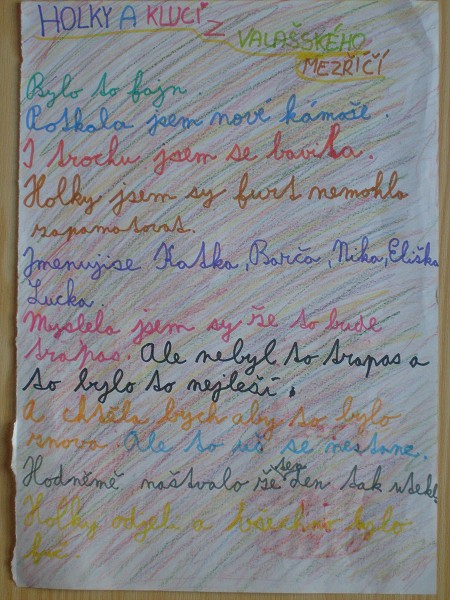 HOLKY A KLUCI Z VALAŠSKÉHO
MEZŘÍČÍ
Bylo to fajn.
Potkala jsem nové kámoše.
I trochu jsem se bavila.
Holky jsem sy furt nemohla
zapamatovat.
Jmenujise Katka, Barča, Nika, Eliška
Lucka.
Myslela jsem sy že to bude
trapas. Ale nebyl to trapas a
to bylo to nejleší.
A chtěla bych aby to bylo
znova. Ale to už se nestane.
Hodněmě naštvalo že ten den tak utekl.
Holky odjeli a všechno bylo